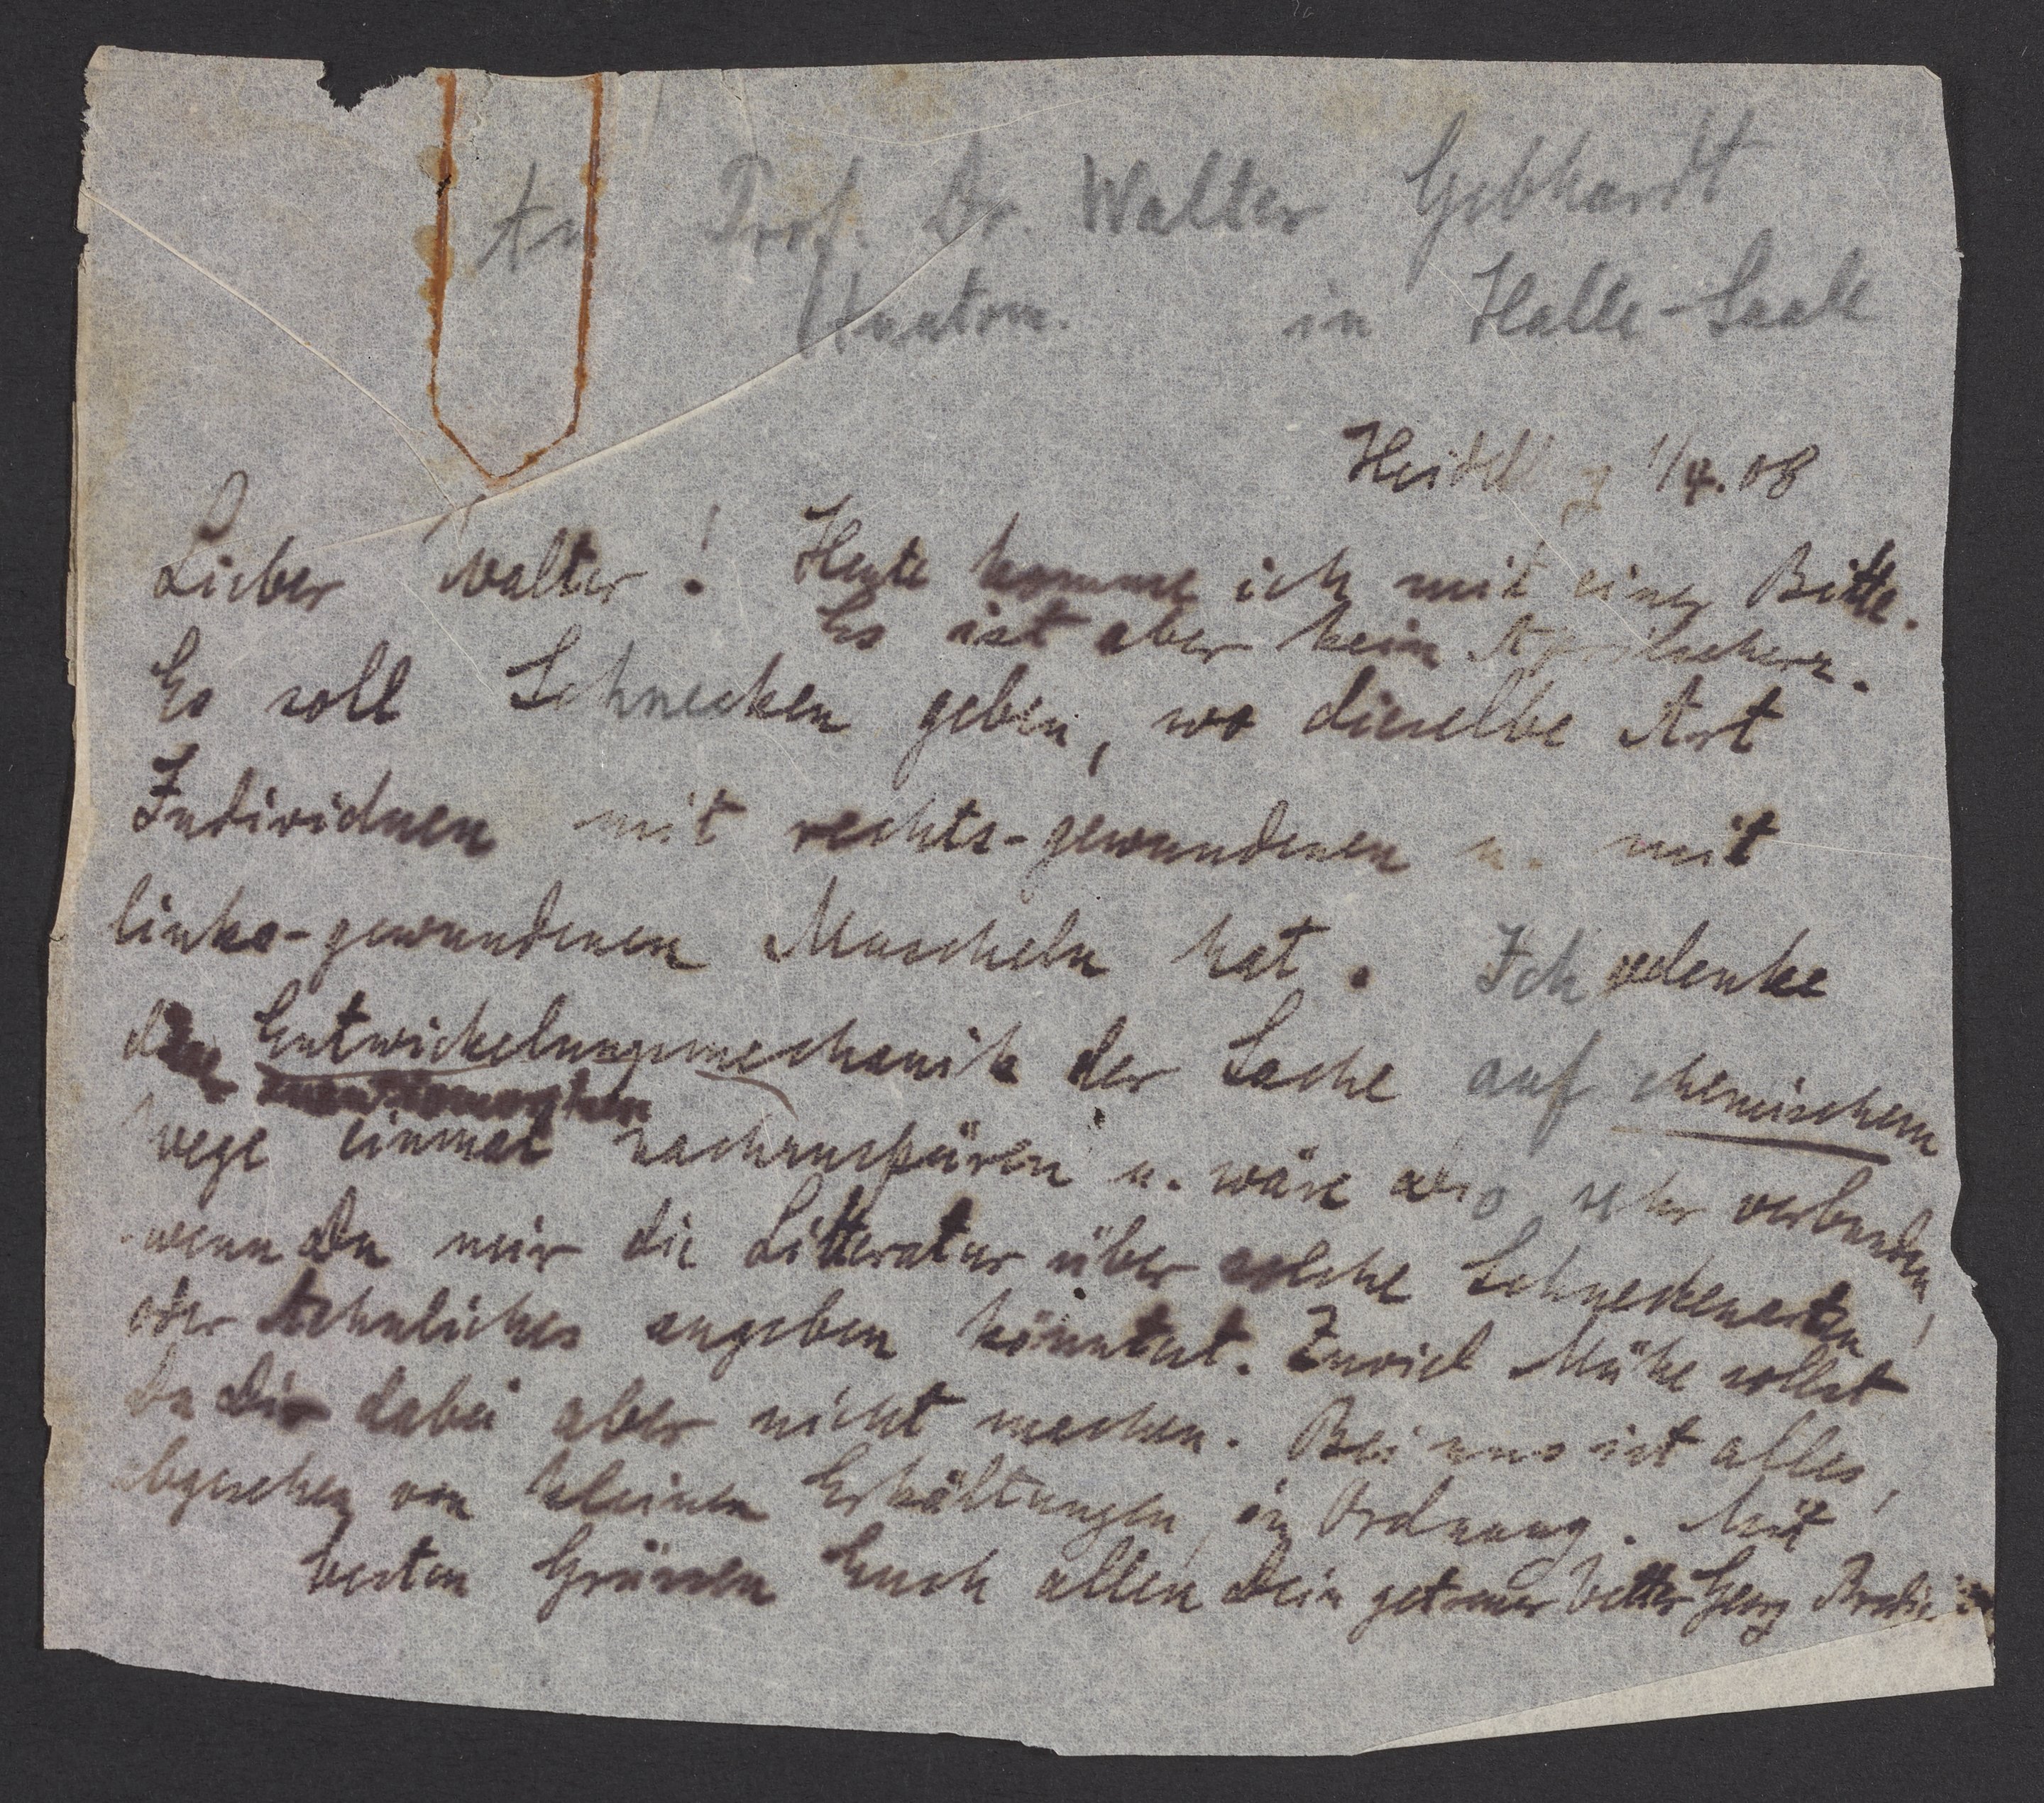 An Prof. Dr. Walter Gebhardt
Anatom. in Halle-Saale
Heidelbg 1/4. 08
Lieber Walter! Heute komme ich mit einer Bitte.
Es ist aber kein Aprilscherz.
Es soll Schnecken geben, wo dieselbe Art
Individuen mit rechts-gewundenen u. mit
links-gewundenen Muscheln hat. Ich gedenke
der Entwickelungsmechanik der Sache auf chemischem
Wege einmal nachzuspüren u. wäre also sehr verbunden,
wenn Du mir die Litteratur über solche Schneckenarten
oder Aehnliches angeben könntest. Zuviel Mühe sollst
Du Dir dabei aber nicht machen. Bei uns ist alles,
abgesehen von kleinen Erkältungen, in Ordnung. Mit
besten Grüssen Euch allen Dein getreuer Vetter Georg Bredig